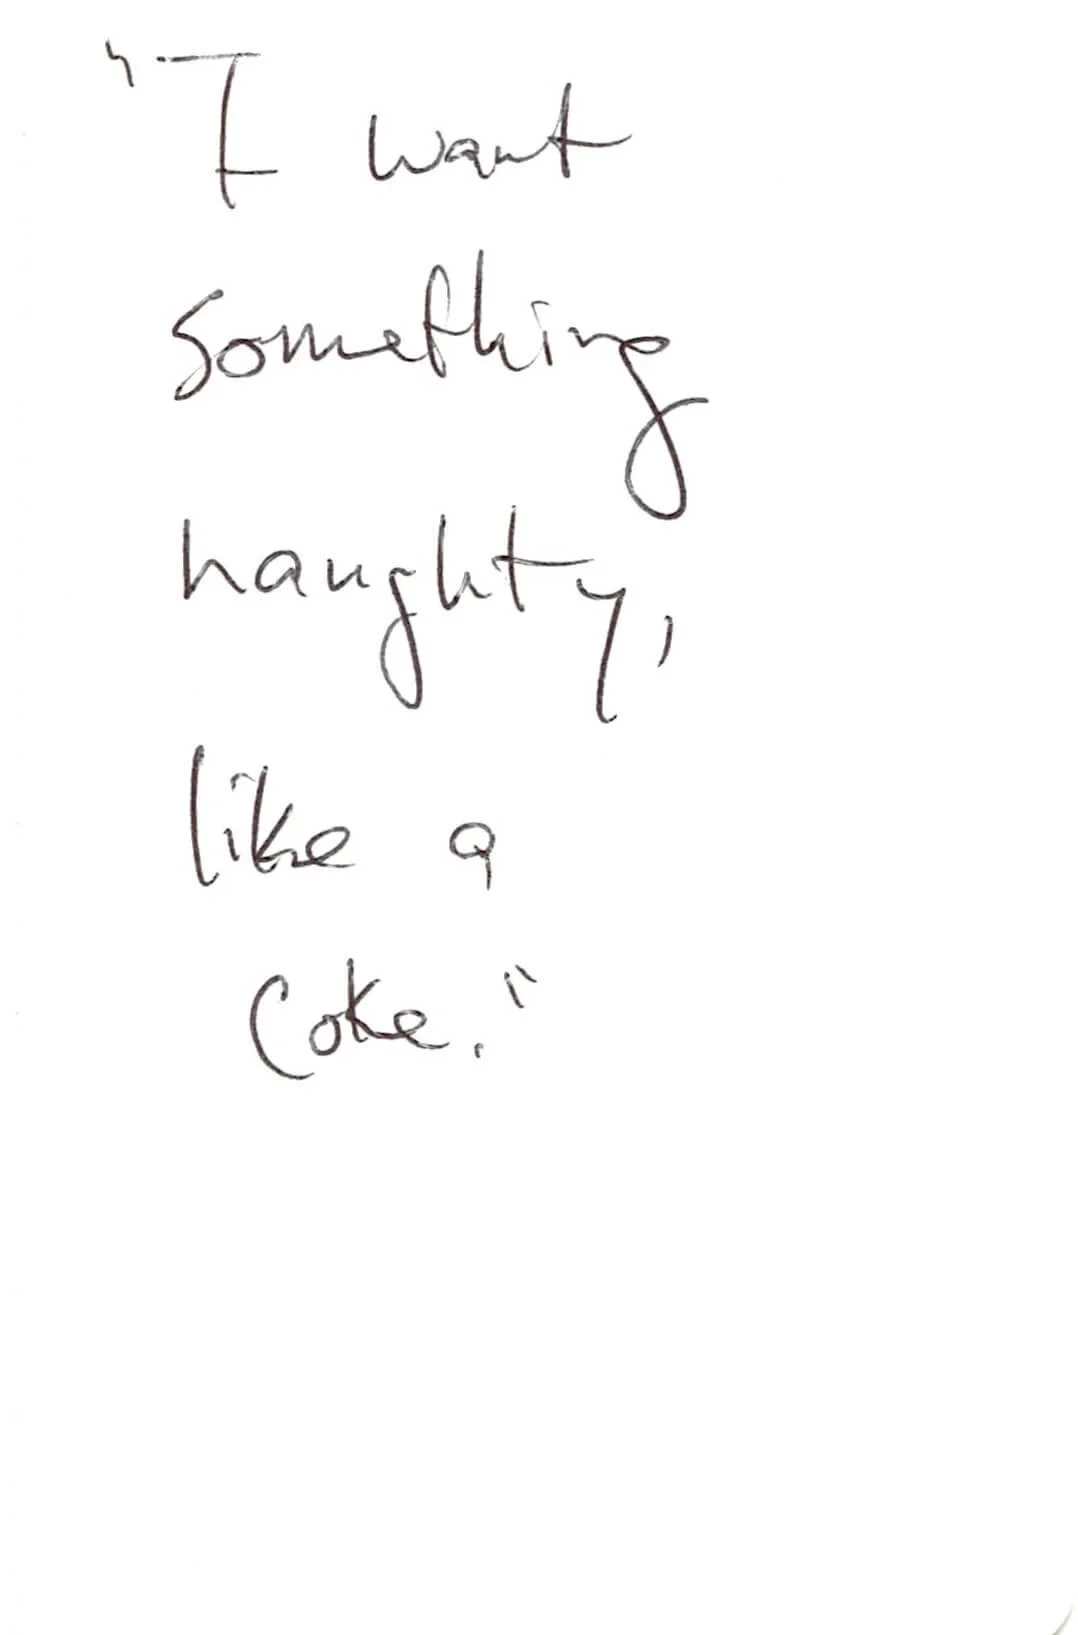 "I want
something
haughty,
like a
Coke."